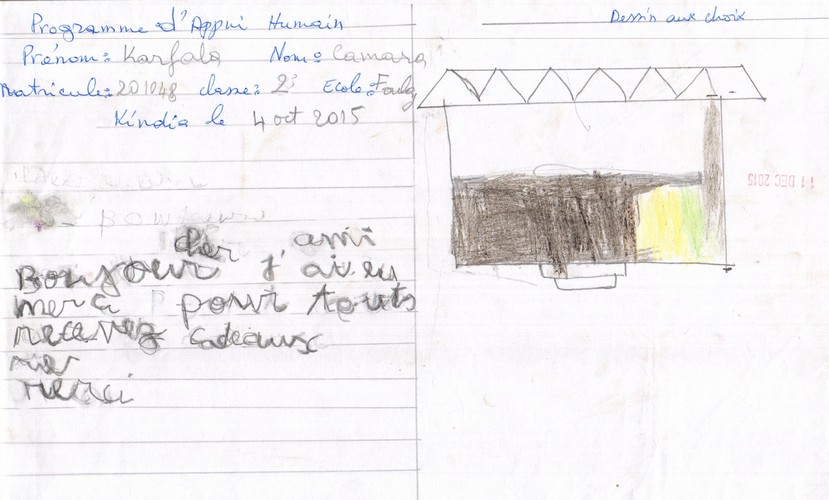 Programme d'Appui Humain
Prénom: Karfala Nom: Camara
Matricule: 201048 classe: 2è Ecole: Foulg
Kindia le 4 oct 2015
cher ami
Bonjour j'ai eu
merci pour touts
recevez cadeaux
mer
merci
Dessin aux choix
11 DEC 2015